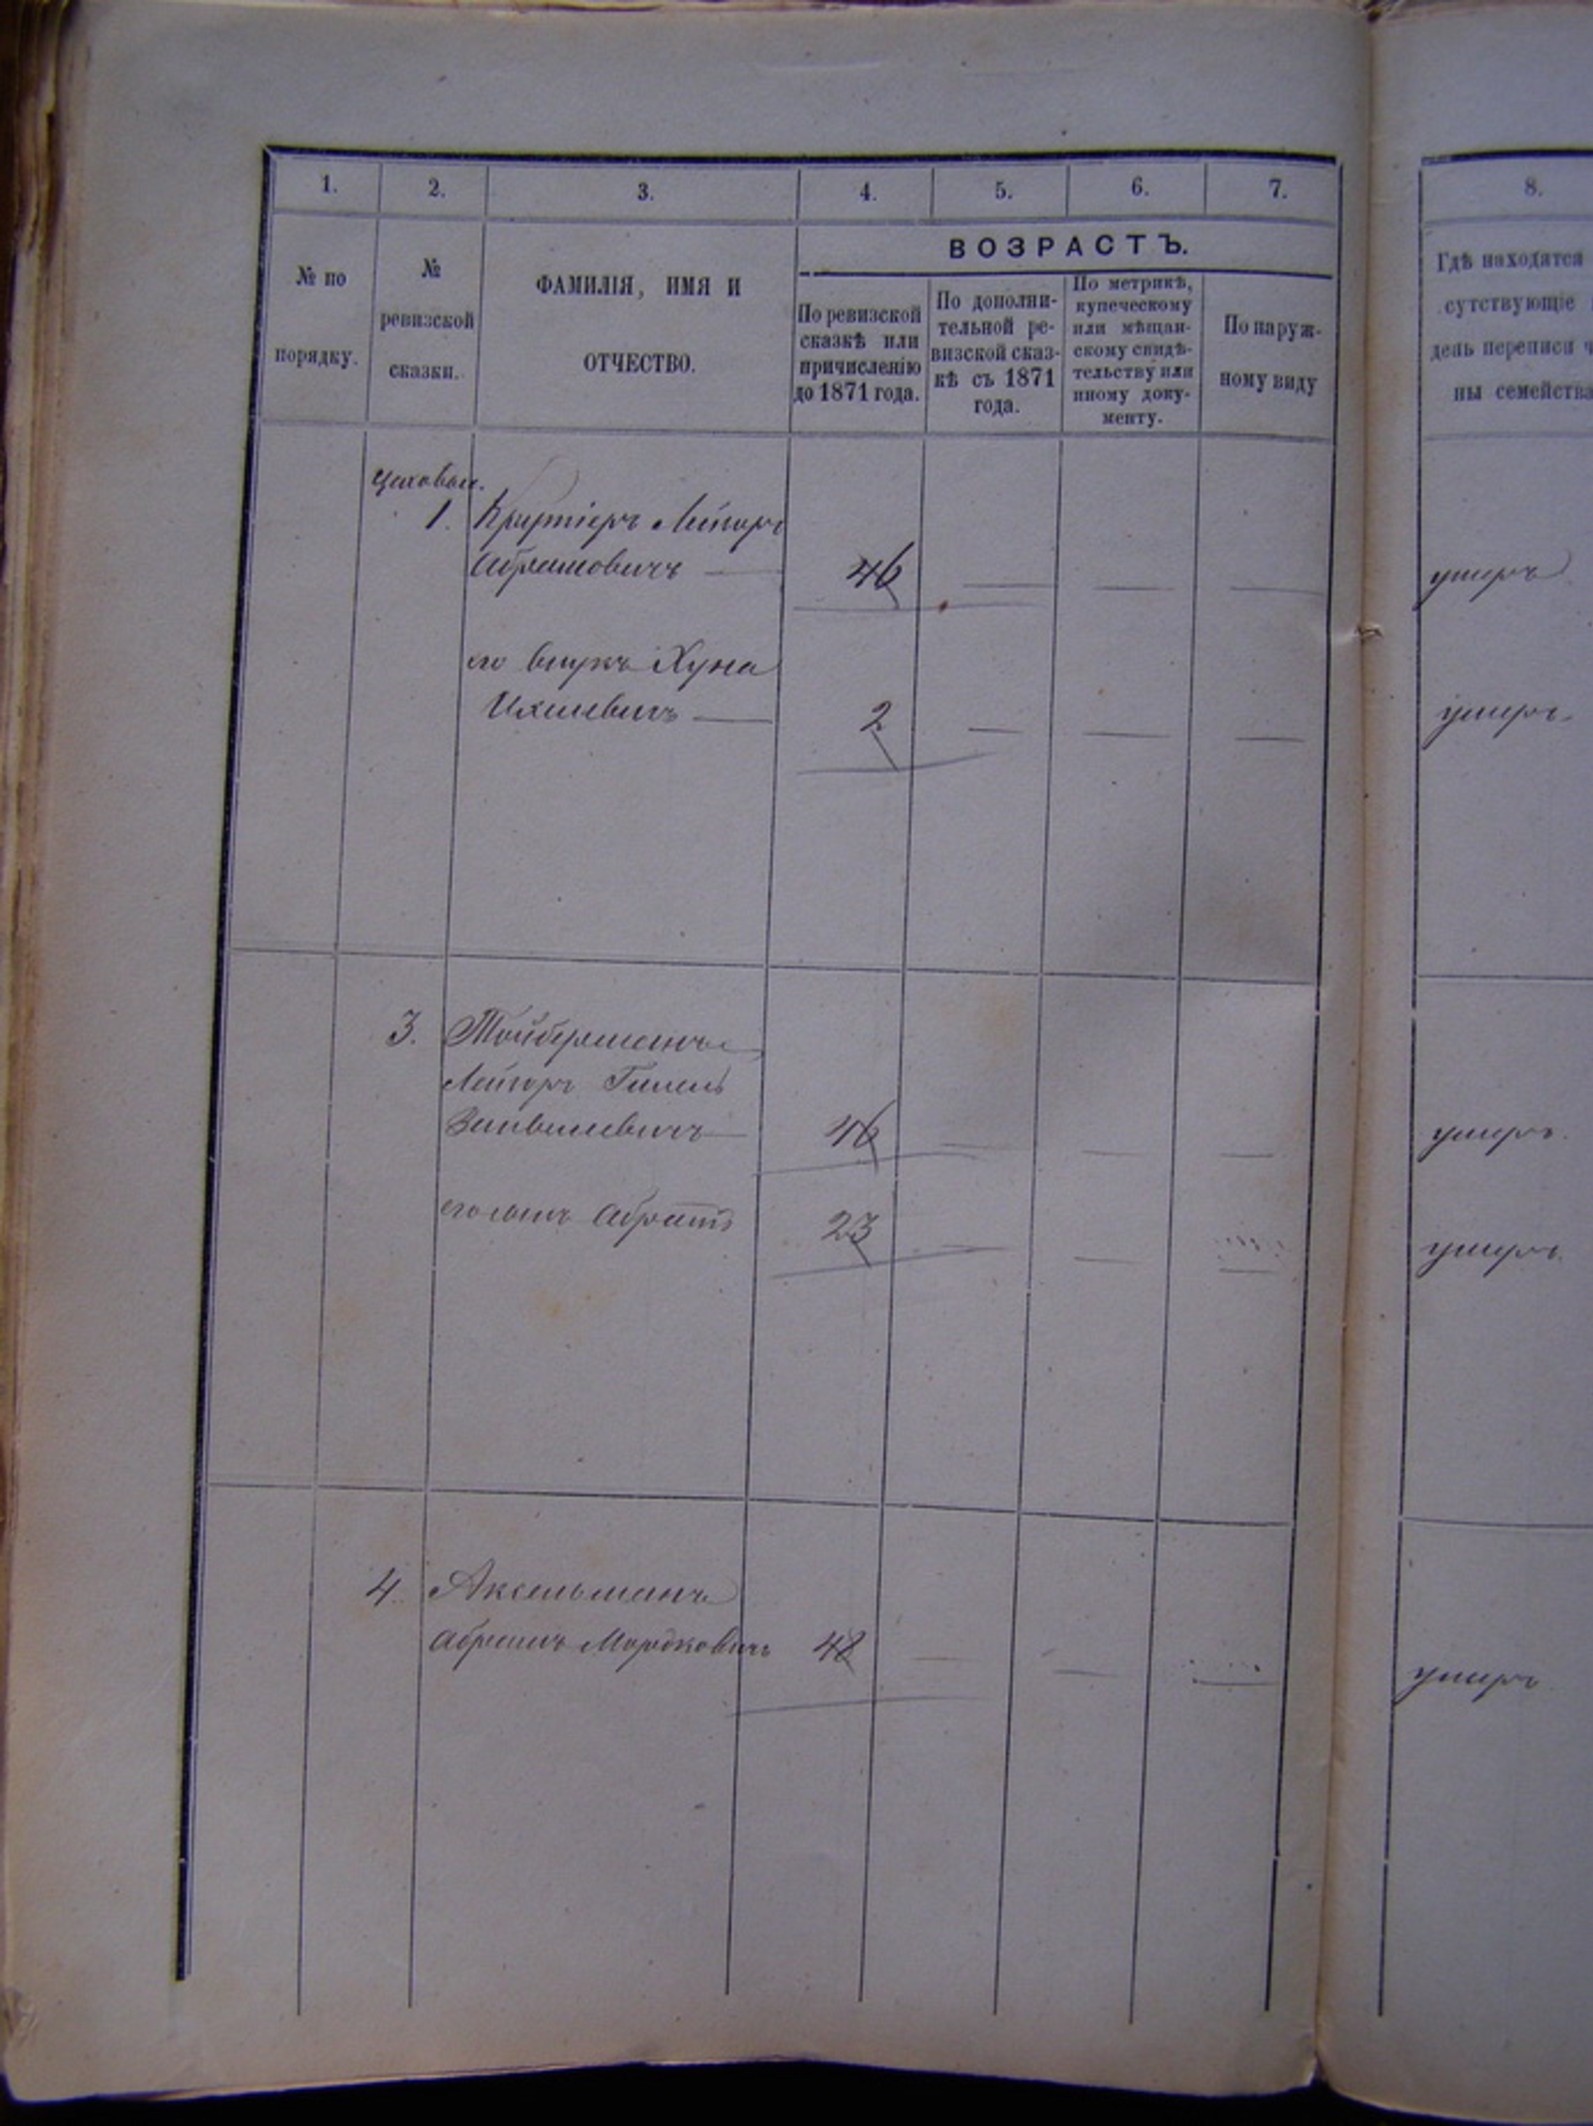 1. 2. 3. 4. 5. 6. 7. 8.
№ по
порядку.
№
ревизской
сказки.
ФАМИЛІЯ, ИМЯ И
ОТЧЕСТВО.
ВОЗРАСТЪ.
По ревизской
сказкѣ или
причисленію
до 1871 года.
По дополни-
тельной ре-
визской сказ-
кѣ съ 1871
года.
По метрикѣ,
купеческому
или мѣщан-
скому свидѣ-
тельству или
иному доку-
менту.
По наруж-
ному виду
Гдѣ находятся
сутствующіе
день переписи ч
ны семейства
Цеховые.
1. Лейзоръ
Абрамовичъ 46 умеръ
его внукъ Хуна
2 умеръ
3. Тойберманъ
Лейзоръ Гилель
Зейвелевичъ 46 умеръ.
его сынъ Абрамъ 23 умеръ.
4. Аксельманъ
Абрамъ Мордковичъ 48 умеръ